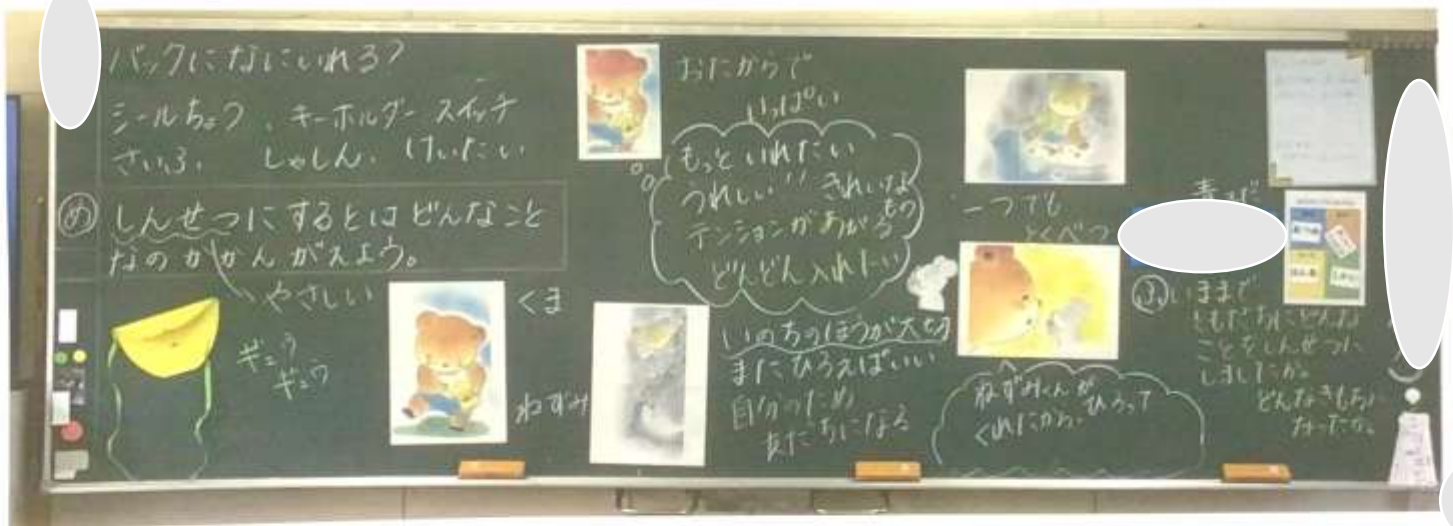 バックになにいれる?
シールちょう、キーホルダー スイッチ
さいふ、しゃしん、けいたい
め しんせつにするとは どんなこと
なのか かんがえよう。
やさしい
ギュウ
ギュウ
くま
ねずみ
おたからで
いっぱい
もっと いれたい
うれしい!! きれいなもの
テンションが あがる
どんどん入れたい
いのちのほうが大切
またひろえばいい
自分のため
友だちになる
一つでも
とくべつ
ねずみくんが ひろって
くれたから、
ふ いままで
ともだちにどんな
ことをしんせつに
しましたか。
どんなきもちに
なったか。